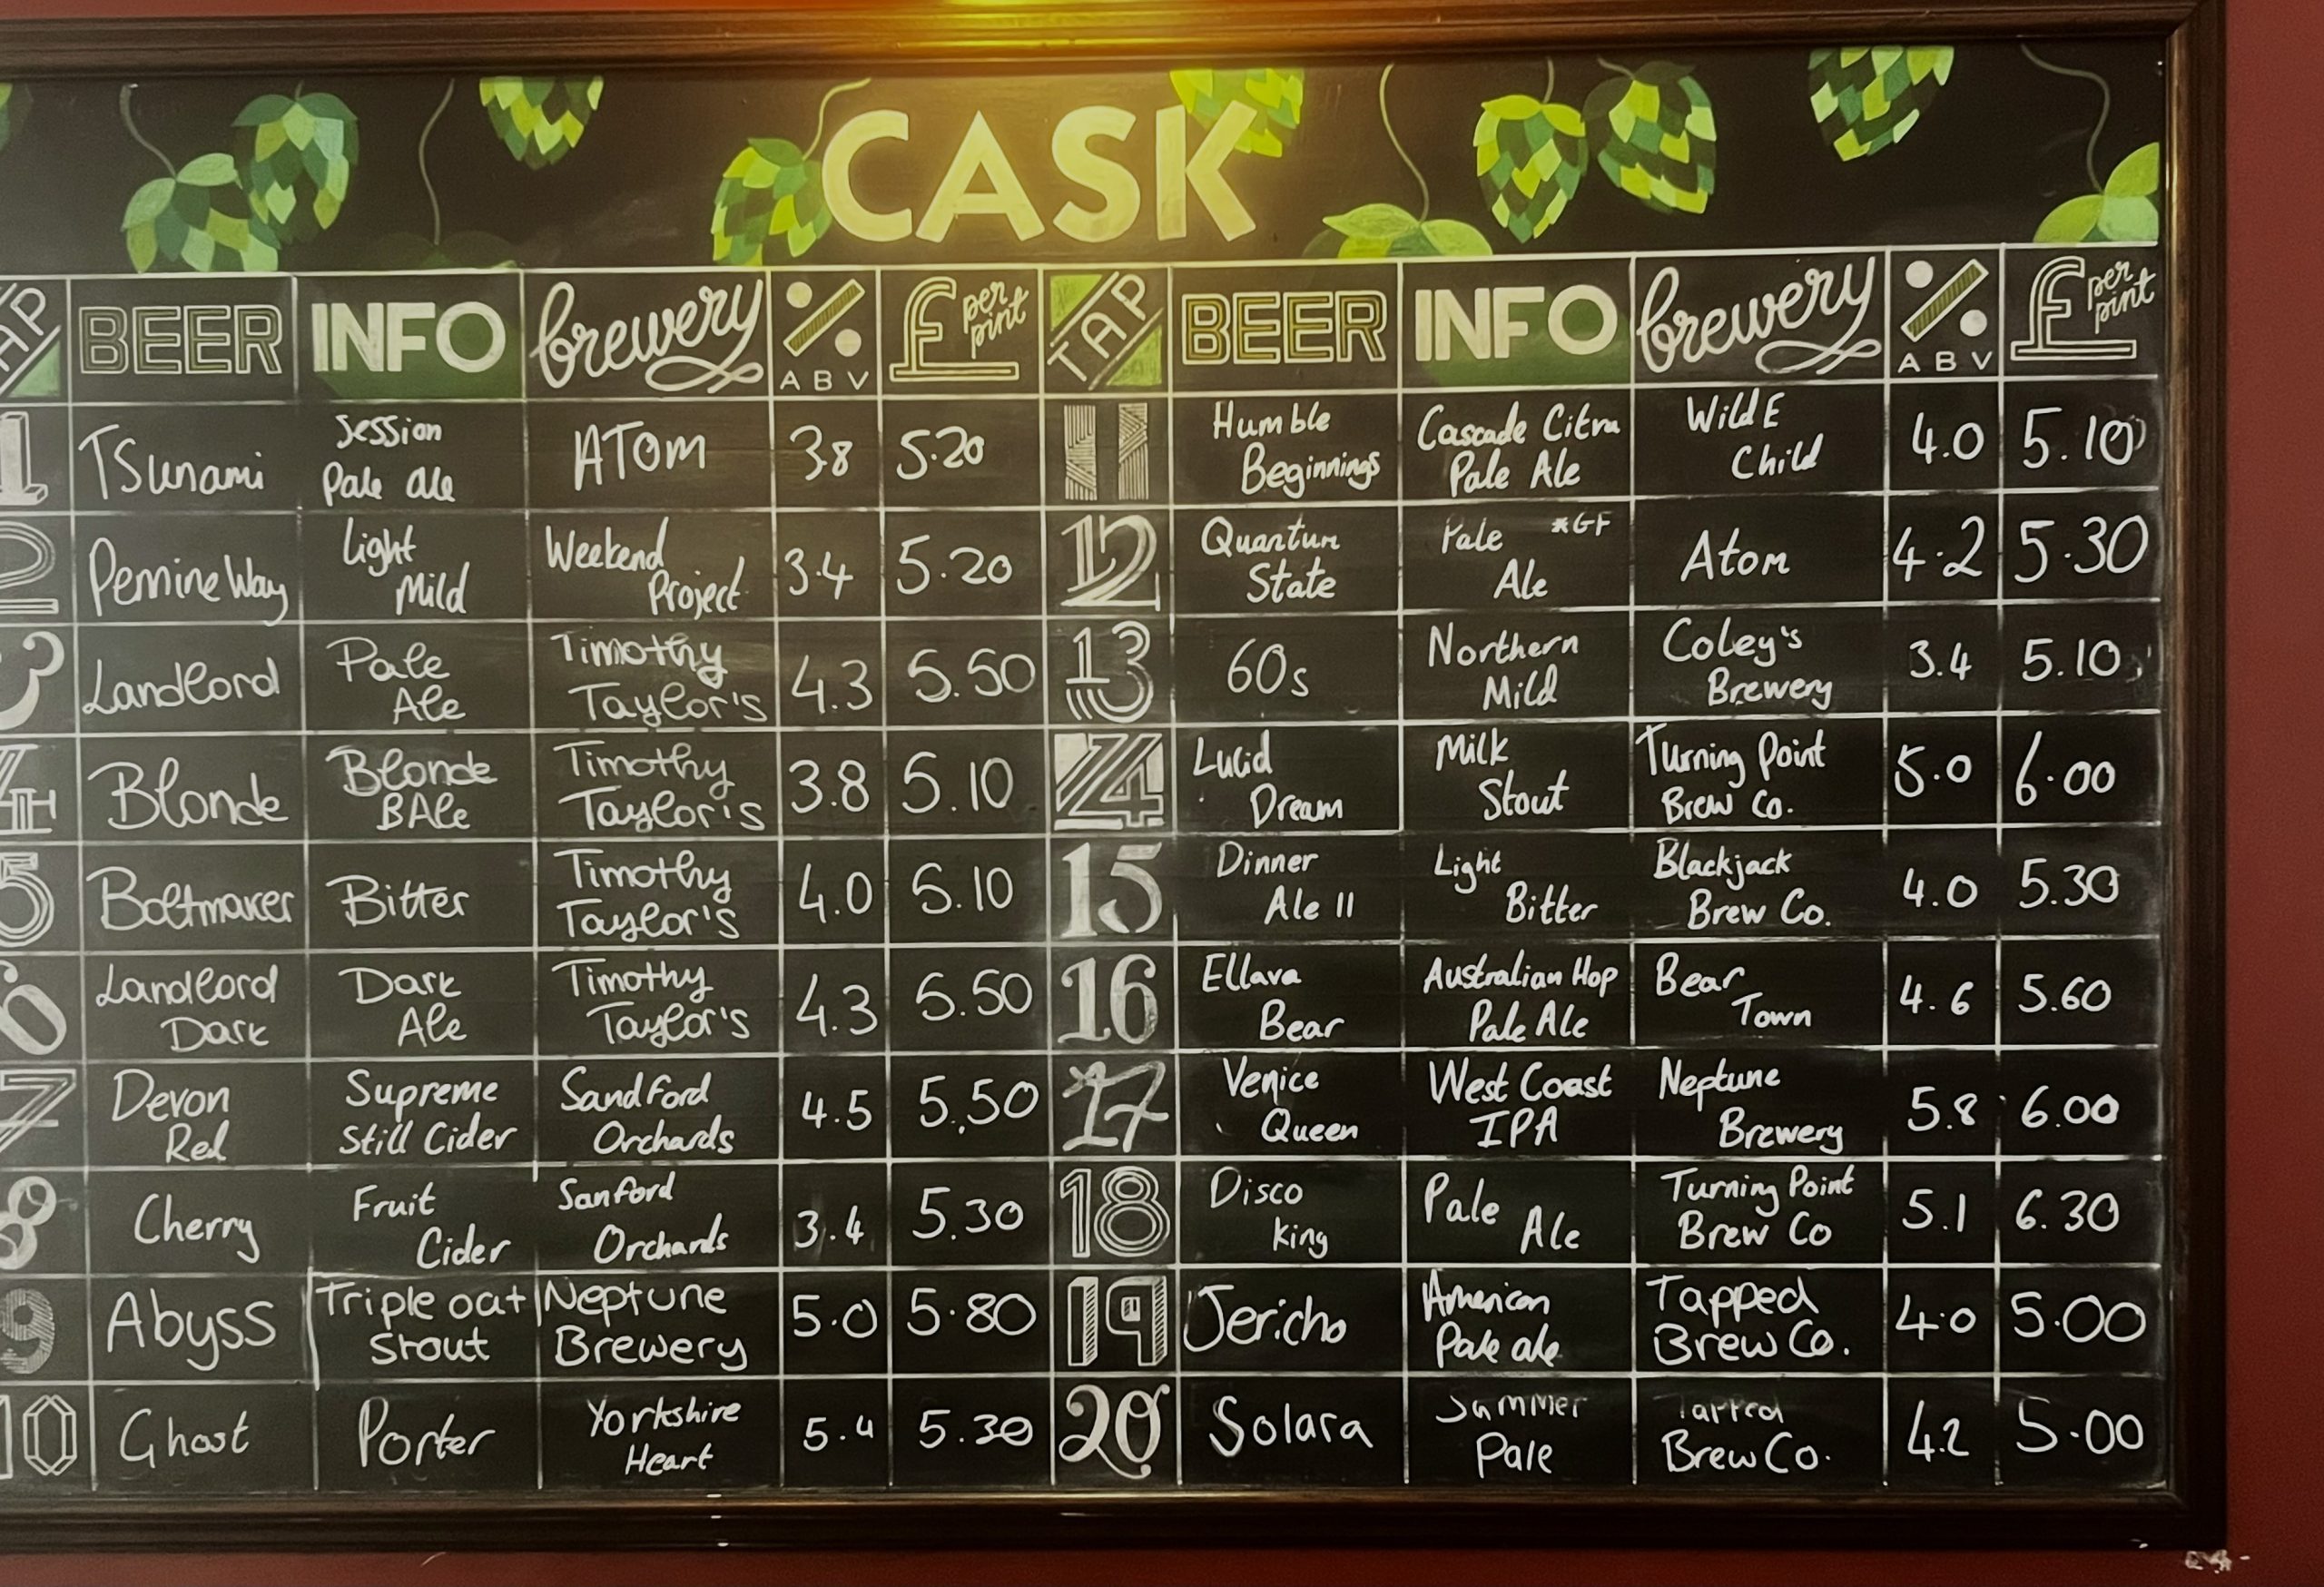 CASK
TAP BEER INFO brewery % ABV £ per pint TAP BEER INFO brewery % ABV £ per pint
1 Tsunami Session Pale Ale ATOM 3.8 5.20
2 Pennine Way Light Mild Weekend Project 3.4 5.20
3 Landlord Pale Ale Timothy Taylor's 4.3 5.50
4 Blonde Blonde BAle Timothy Taylor's 3.8 5.10
5 Boltmaker Bitter Timothy Taylor's 4.0 5.10
6 Landlord Dark Dark Ale Timothy Taylor's 4.3 5.50
7 Devon Red Supreme Still Cider Sandford Orchards 4.5 5.50
8 Cherry Fruit Cider Sanford Orchards 3.4 5.30
9 Abyss Triple oat Stout Neptune Brewery 5.0 5.80
10 Ghost Porter Yorkshire Heart 5.4 5.30
11 Humble Beginnings Cascade Citra Pale Ale Wild E Child 4.0 5.10
12 Quantum State Pale Ale *GF Atom 4.2 5.30
13 60s Northern Mild Coley's Brewery 3.4 5.10
14 Lucid Dream Milk Stout Turning Point Brew Co. 5.0 6.00
15 Dinner Ale II Light Bitter Blackjack Brew Co. 4.0 5.30
16 Ellava Bear Australian Hop Pale Ale Bear Town 4.6 5.60
17 Venice Queen West Coast IPA Neptune Brewery 5.8 6.00
18 Disco King Pale Ale Turning Point Brew Co 5.1 6.30
19 Jericho American Pale ale Tapped Brew Co. 4.0 5.00
20 Solara Summer Pale Tapped Brew Co. 4.2 5.00